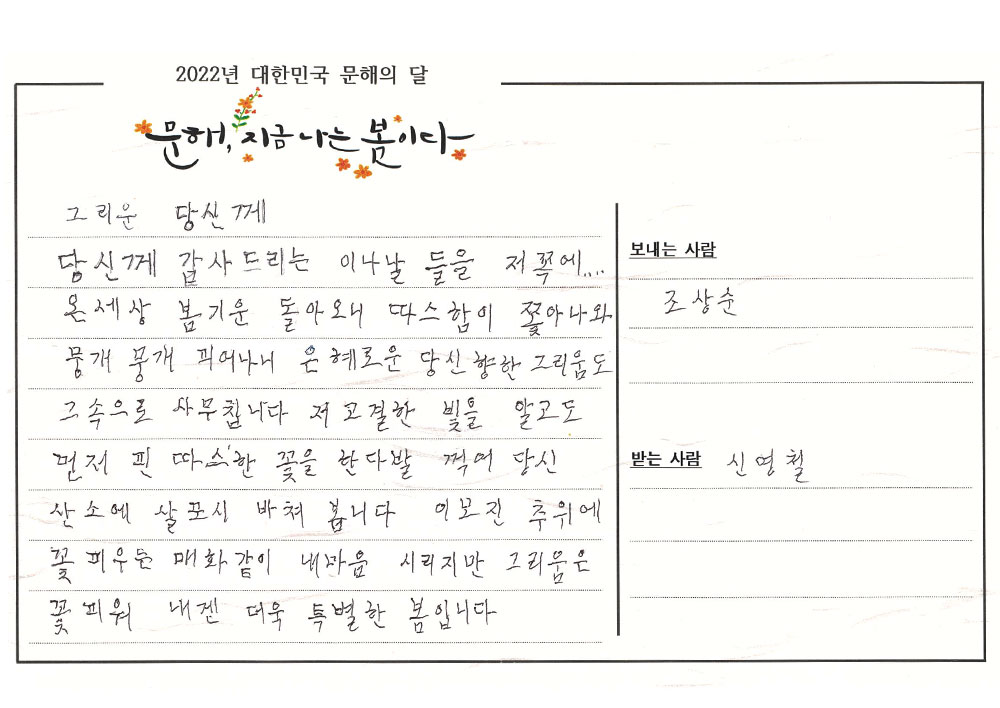 2022년 대한민국 문해의 달
문해, 지금 나는 봄이다
그리운 당신께
당신께 감사드리는 이나날 들을 저 쪽에....
온세상 봄기운 돌아오니 따스함이 쫓아나와
뭉개 뭉개 피어나니 은혜로운 당신향한 그리움도
그속으로 사무칩니다 저 고결한 빛을 알고도
먼저 핀 따스한 꽃을 한다발 꺽어 당신
산소에 살포시 바쳐 봅니다 이모진 추위에
꽃 피우는 매화같이 내마음 시리지만 그리움은
꽃 피워 내겐 더욱 특별한 봄입니다
보내는 사람
조상순
받는 사람 신영철